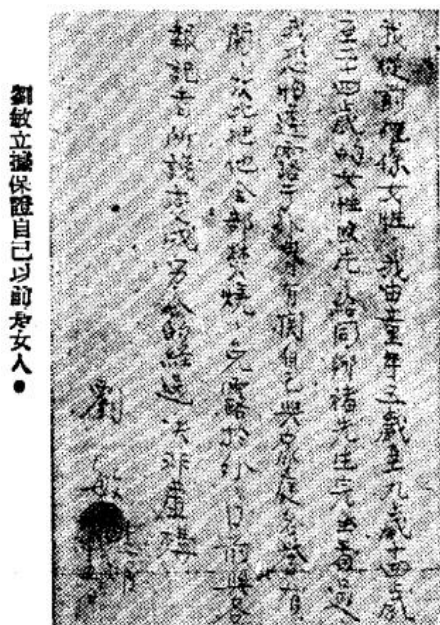 我從前確係女性我由童年三歲至九歲十四歲
至三十四歲的女性照片給同鄉褚先生完全看過
我恐怕 露于外界有關自己與家庭名譽有
關、故此把他全部焚燒、免露於外、日前與各
報記者所談 成男人的經過決非虛構
劉敏
劉敏立據保證自己以前為女人●